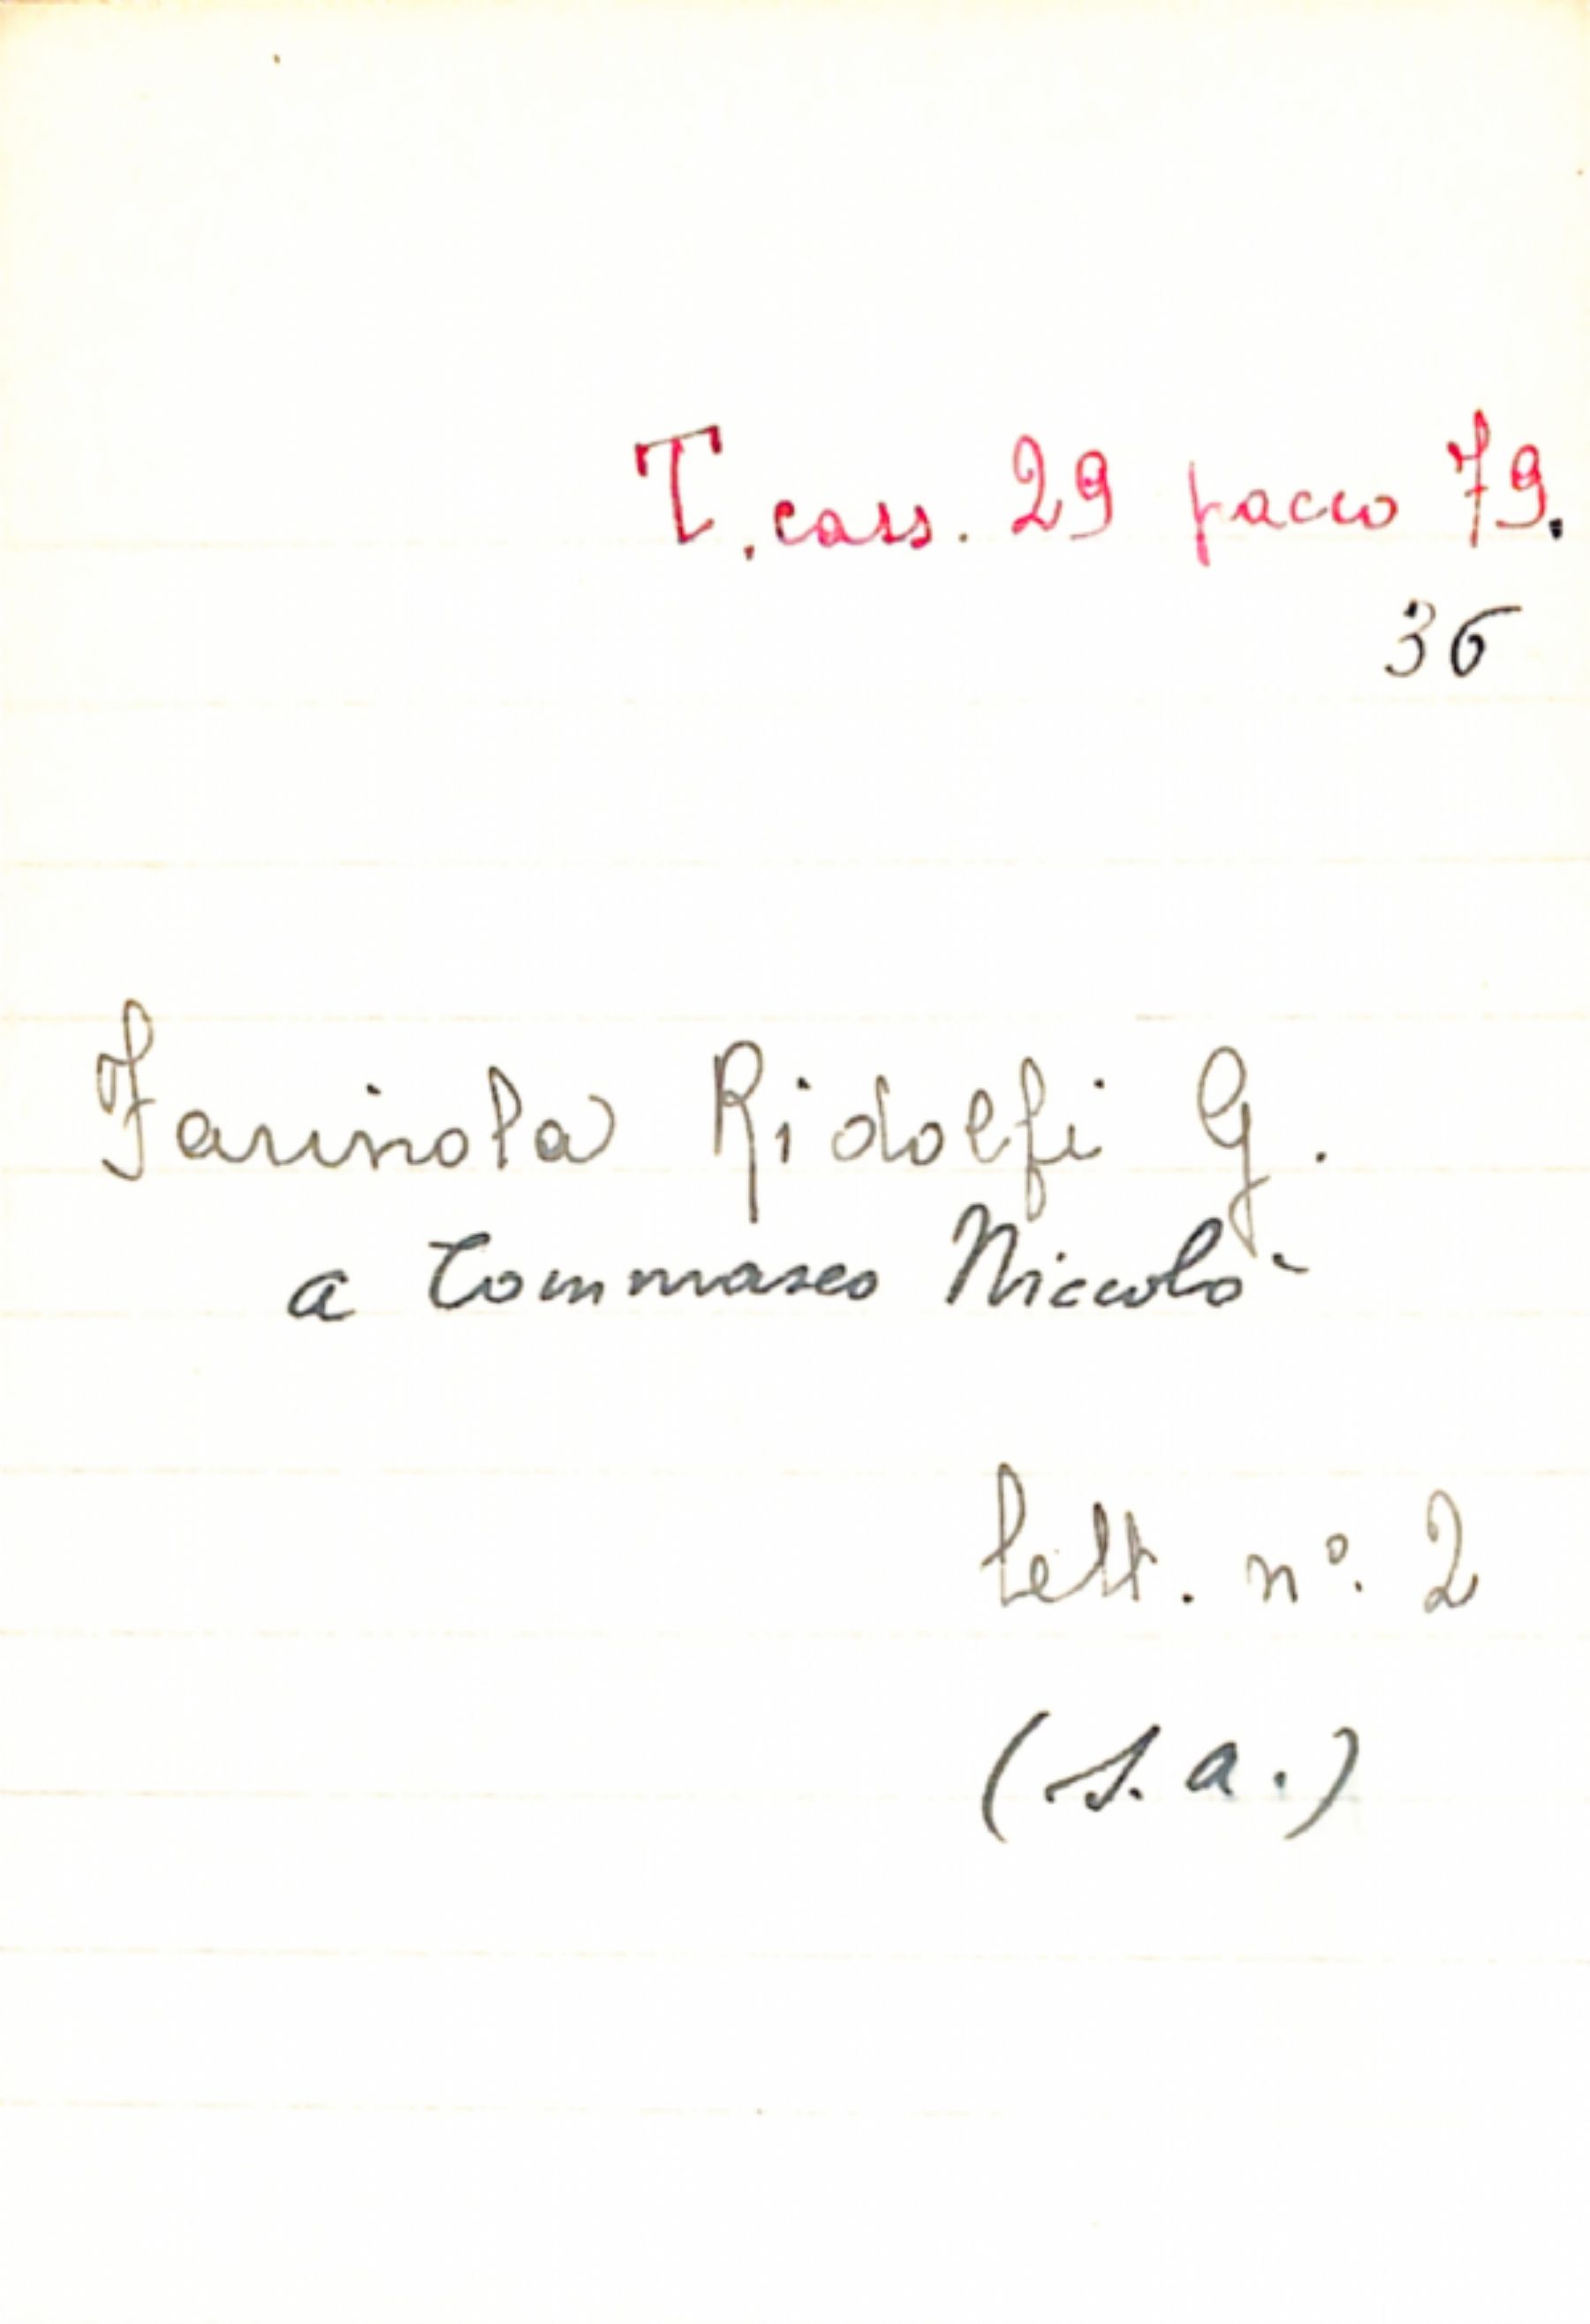 T. cass. 29 pacco 79.
36
Farinola Ridolfi G.
a Tommaseo Niccolò
lett. n.° 2
(s.a.)